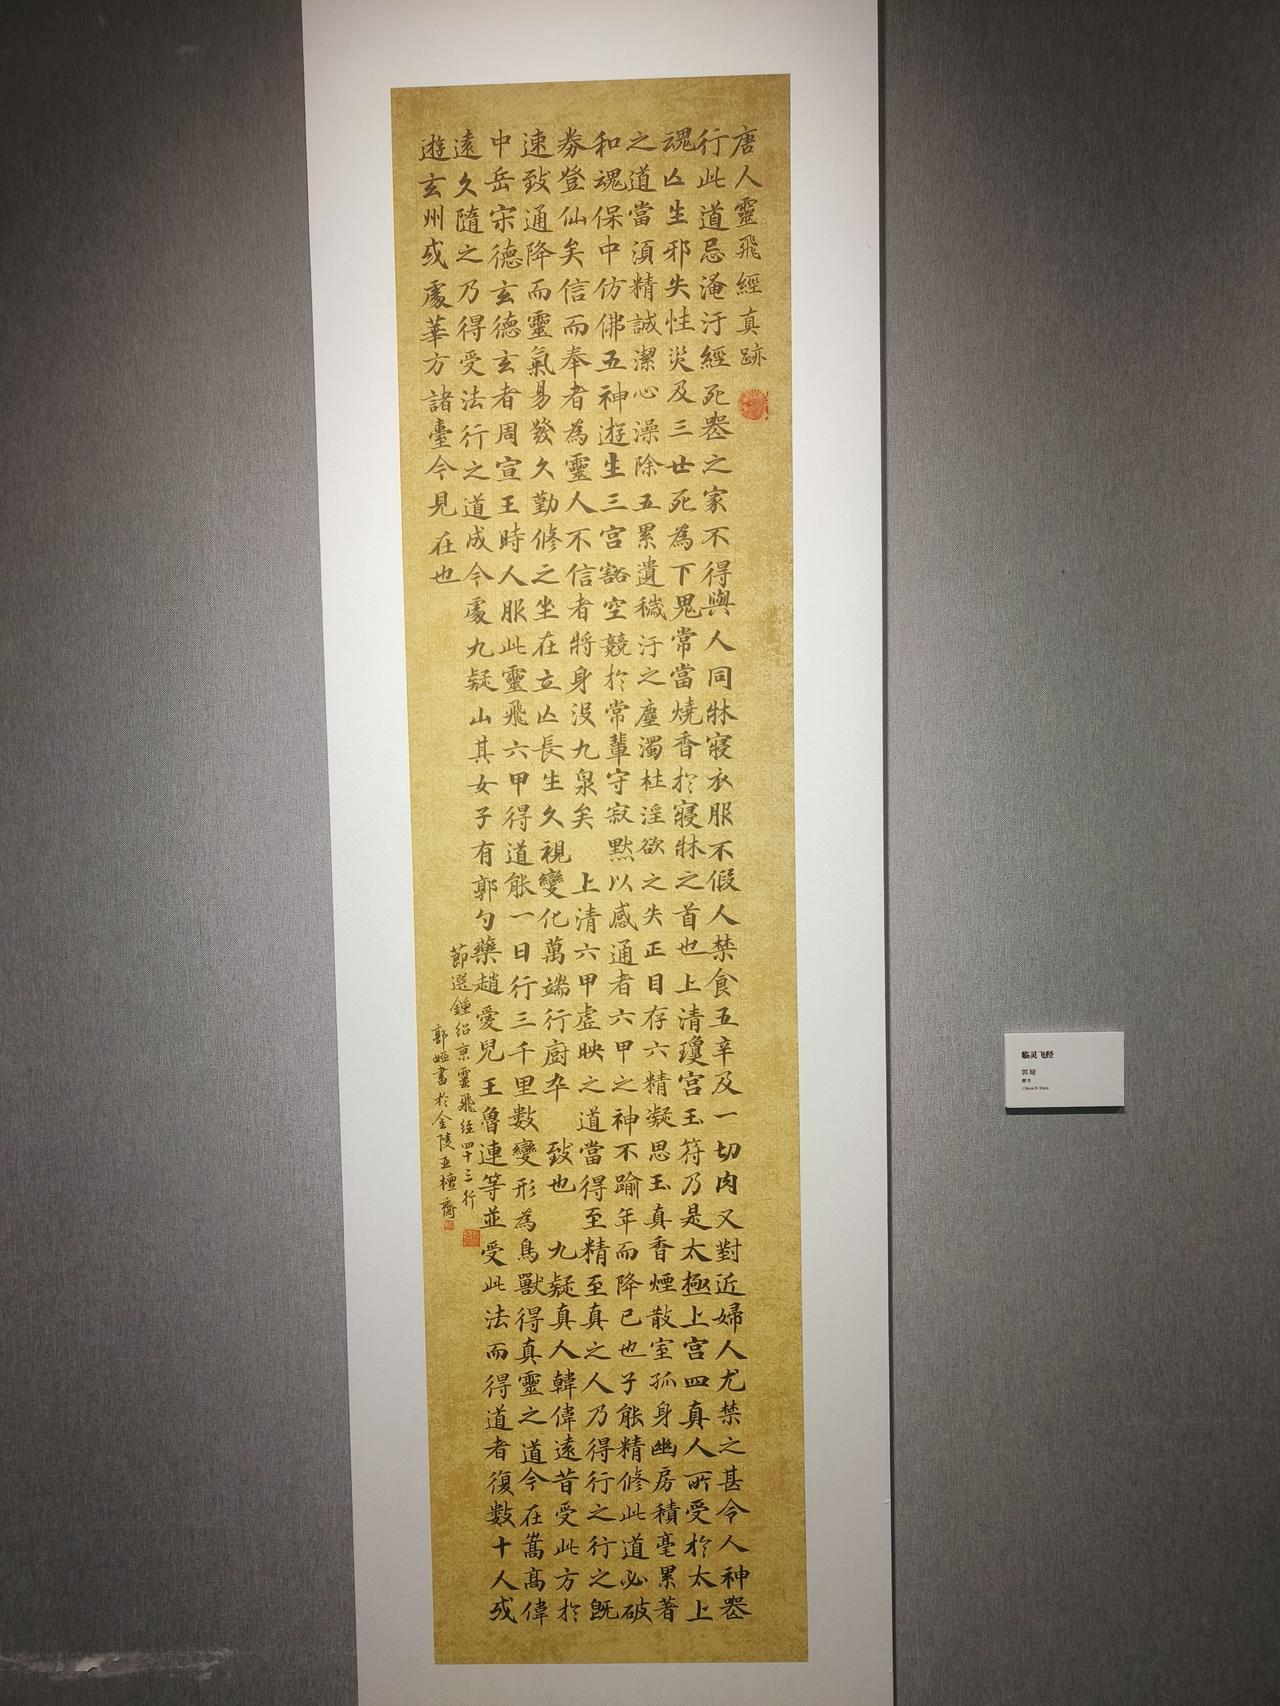 唐人靈飛經真跡
行此道忌淹汙經死喪之家不得與人同牀寢衣服不假人禁食五辛及一切肉又對近婦人尤禁之甚令人神喪
魂亾生邪失性災及三世死為下鬼常當燒香於寢牀之首也上清瓊宮玉符乃是太極上宮四真人所受於太上
之道當須精誠潔心澡除五累遺穢汙之塵濁杜淫欲之失正目存六精凝思玉真香煙散室孤身幽房積毫累著
和魂保中仿佛五神遊生三宮豁空競於常輩守寂默以感通者六甲之神不踰年而降已也子能精修此道必破
劵登仙矣信而奉者為靈人不信者將身没九泉矣 上清六甲虛映之道當得至精至真之人乃得行之行之既
速致通降而靈氣易發久勤修之坐在立亾長生久視變化萬端行廚卒 致也 九疑真人韓偉遠昔受此方於
中岳宋德玄德玄者周宣王時人服此靈飛六甲得道能一日行三千里數變形為鳥獸得真靈之道今在嵩高偉
遠久隨之乃得受法行之道成今處九疑山其女子有郭勺藥趙愛兒王魯連等並受此法而得道者復數十人或
遊玄州或處華方諸臺今見在也
節選鍾紹京靈飛經四十三行
郭婭書於金陵亚檀齋
临灵飞经
郭娅
楷书